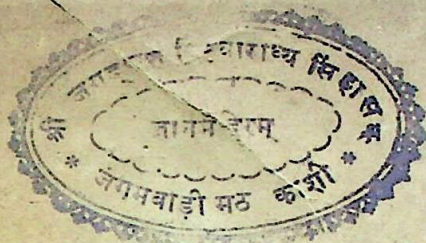 श्री जगद्गुरु विश्वाराध्य सिंहासन
ज्ञानमन्दिरम्
* जंगमवाड़ी मठ काशी *